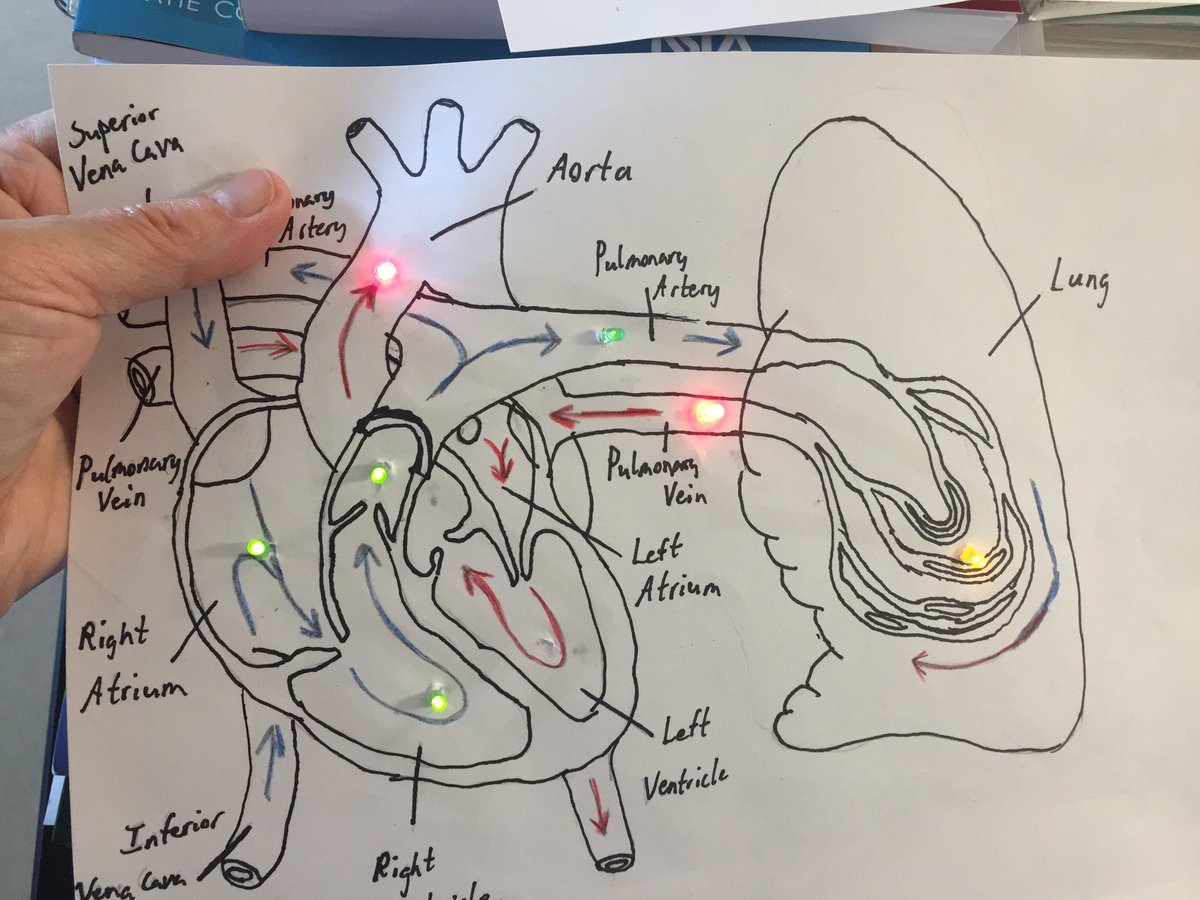 Superior
Vena Cava
Aorta
Artery
Pulmonary
Artery
Lung
Pulmonary
Vein
Pulmonary
Vein
Left
Atrium
Right
Atrium
Left
Ventricle
Inferior
Vena Cava
Right